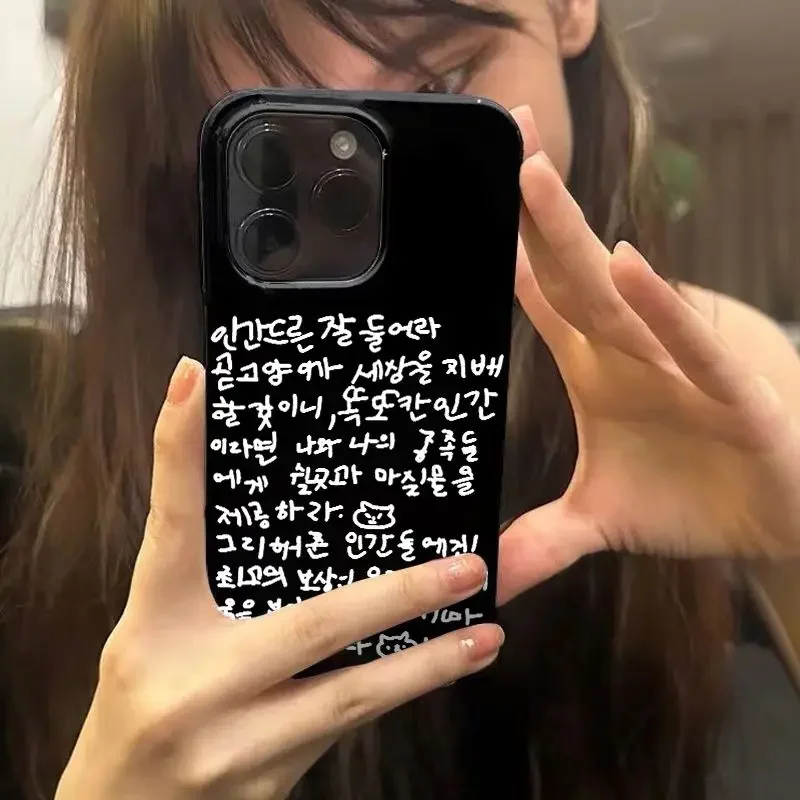 인간드른 잘 들어라
곧 고양이가 세상을 지배
할 것이니, 똑또칸 인간
이라면 나와 나의 동족들
에게 쉴곳과 마실물을
제공하라.
그리하면 인간들에게
최고의 보상